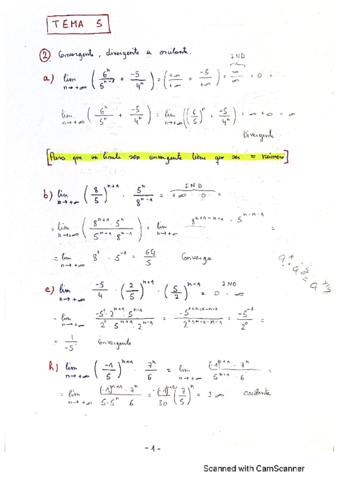 TEMA 5
② Convergente, divergente u oscilante. IND
a) lim n→+∞ (6ⁿ/5ⁿ⁻² + -5/4ⁿ) = (+∞/+∞ + -5/+∞) = ∞/∞ + 0 =
lim n→+∞ (6ⁿ/5ⁿ + -5/4ⁿ) = lim n→+∞ ((6/5)ⁿ + -5/4ⁿ) = +∞ + 0 = +∞
Divergente
Para que un límite sea convergente tiene que ser = número
b) lim n→+∞ (8/5)ⁿ⁺¹ · 5ⁿ/8ⁿ⁻¹ = IND +∞ · 0 =
= lim n→+∞ (8ⁿ⁺¹ · 5ⁿ / 5ⁿ⁺¹ · 8ⁿ⁻¹) = lim n→+∞ 8ⁿ⁺¹⁻ⁿ⁺¹ · 5ⁿ⁻ⁿ⁻¹ =
= lim n→+∞ 8² · 5⁻¹ = 64/5 Converge
c) lim n→+∞ -5/4 · (2/5)ⁿ⁺¹ · (5/2)ⁿ⁻¹ = IND 0 · ∞
= 1/-5 Convergente
h) lim n→+∞ (-1/5)ⁿ⁺¹ · 7ⁿ/6 = lim n→+∞ (-1)ⁿ⁺¹ · 7ⁿ / 5ⁿ⁺¹ · 6 =
= lim n→+∞ (-1)ⁿ⁺¹ · 7ⁿ / 5·5ⁿ · 6 = (-1)ⁿ⁺¹/30 (7/5)ⁿ = ± ∞ oscilante
- 1 -
Scanned with CamScanner